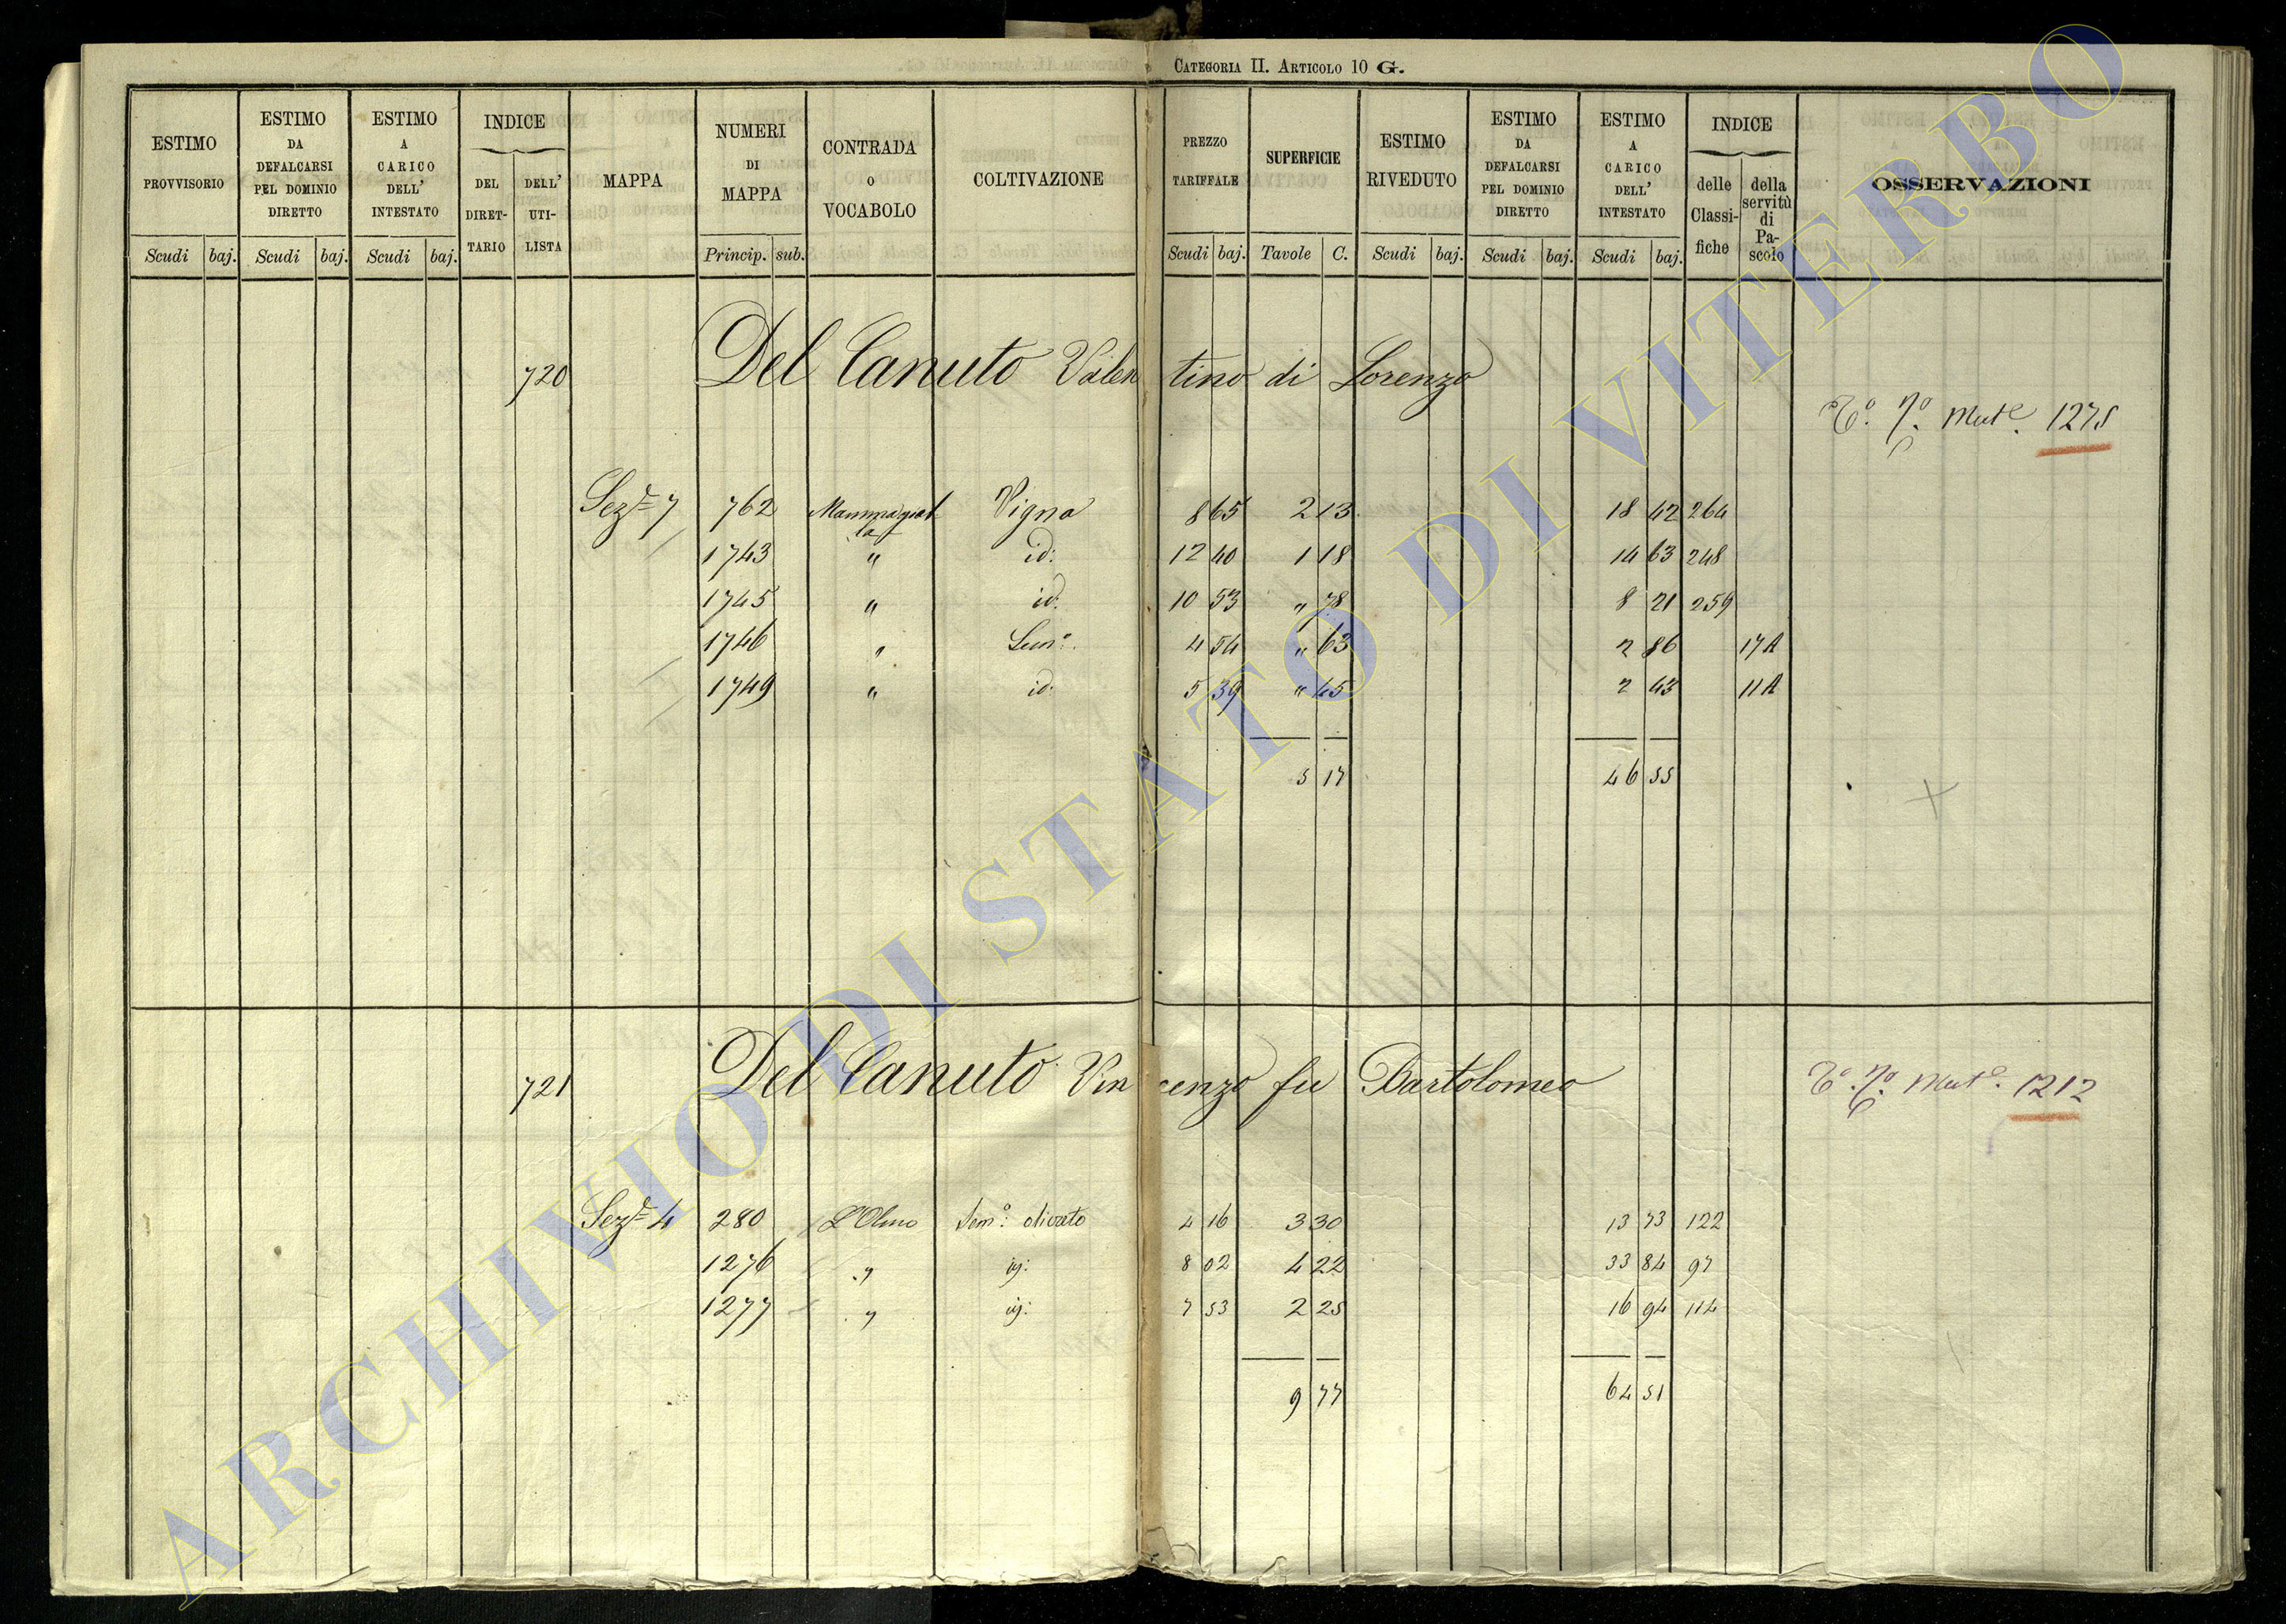 CATEGORIA II. ARTICOLO 10 G.
ESTIMO PROVVISORIO Scudi baj.
ESTIMO DA DEFALCARSI PEL DOMINIO DIRETTO Scudi baj.
ESTIMO A CARICO DELL' INTESTATO Scudi baj.
INDICE DEL DIRETTARIO DELL' UTILISTA
MAPPA
NUMERI DI MAPPA Princip. sub.
CONTRADA O VOCABOLO
COLTIVAZIONE
PREZZO TARIFFALE Scudi baj.
SUPERFICIE Tavole C.
ESTIMO RIVEDUTO Scudi baj.
ESTIMO DA DEFALCARSI PEL DOMINIO DIRETTO Scudi baj.
ESTIMO A CARICO DELL' INTESTATO Scudi baj.
INDICE delle Classifiche della servitù di Pascolo
OSSERVAZIONI
720 Del Canuto Valentino di Lorenzo
Mut.e 1275
Sez.e 7 762 Vigna 8 65 2 13 18 42 264
1743 " id: 12 40 1 18 14 63 248
1745 " id: 10 53 " 78 8 21 259
1746 " Sem.o 4 54 " 63 2 86 17 A
1749 " id: 5 39 " 45 2 43 11 A
5 17 46 55
721 Del Canuto Vincenzo fu Bartolomeo
Mut.e 1212
Sez.e 4 280 L'Olmo Sem.o olivato 4 16 3 30 13 73 122
1276 " id: 8 02 4 22 33 84 97
1277 " id: 7 53 2 25 16 94 114
9 77 64 51
ARCHIVIO DI STATO DI VITERBO